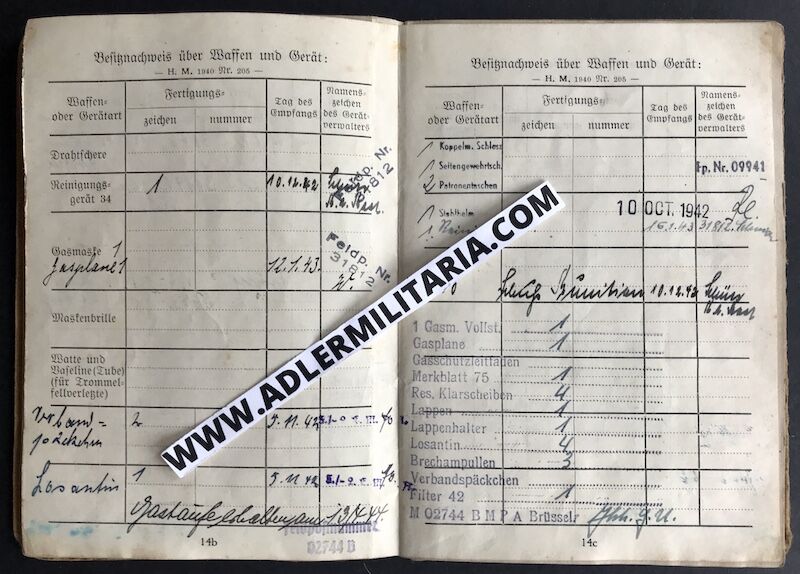 Besitznachweis über Waffen und Gerät:
— H. M. 1940 Nr. 205 —
Waffen- oder Gerätart
Fertigungs-
zeichen
nummer
Tag des Empfangs
Namens- zeichen des Gerät- verwalters
Drahtschere
Reinigungs- gerät 34 1 10.12.42
Feldp. Nr.
31812
Gasmaske 1
Gasplane 1 12.1.43.
Feldp. Nr.
31812
Maskenbrille
Watte und
Vaseline (Tube)
(für Trommel-
fellverletzte)
Verband= 2 5.11.42
päckchen
Losantin 1 5.11.42
Feldpostnummer
02744 B
14b
Besitznachweis über Waffen und Gerät:
— H. M. 1940 Nr. 205 —
Waffen- oder Gerätart
Fertigungs-
zeichen
nummer
Tag des Empfangs
Namens- zeichen des Gerät- verwalters
1 Koppelm. Schloss
1 Seitengewehrtsch. Fp. Nr. 09941
2 Patronentaschen
1 Stahlhelm 10 OKT. 1942
1 16.1.43 31812
Munition 10.12.42
1 Gasm. Vollst. 1
Gasplane 1
Gasschutzleitfaden
Merkblatt 75 1
Res. Klarscheiben 4
Lappen 1
Lappenhalter 1
Losantin 4
Brechampullen 3
Verbandspäckchen
Filter 42 1
M 02744 B M P A Brüssel
14c
WWW.ADLERMILITARIA.COM